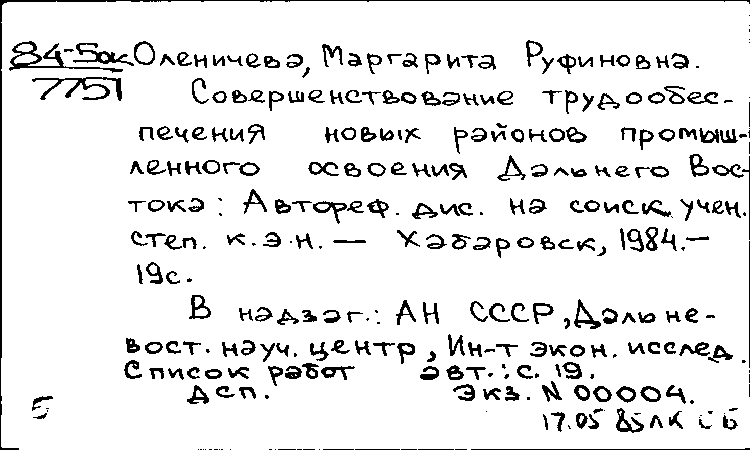 84-5ок Оленичева, Маргарита Руфиновна.
7751 Совершенствование трудообес-
печения новых районов промыш-
ленного освоения Дальнего Вос-
тока: Автореф. дис. на соиск. учен.
степ. к.э.н. — Хабаровск, 1984.—
19с.
В надзаг.: АН СССР, Дальне-
вост. науч. центр, Ин-т экон. исслед.
Список работ авт.: с. 19.
Дсп. Экз. N 00004.
5 17.05 85 ЛК